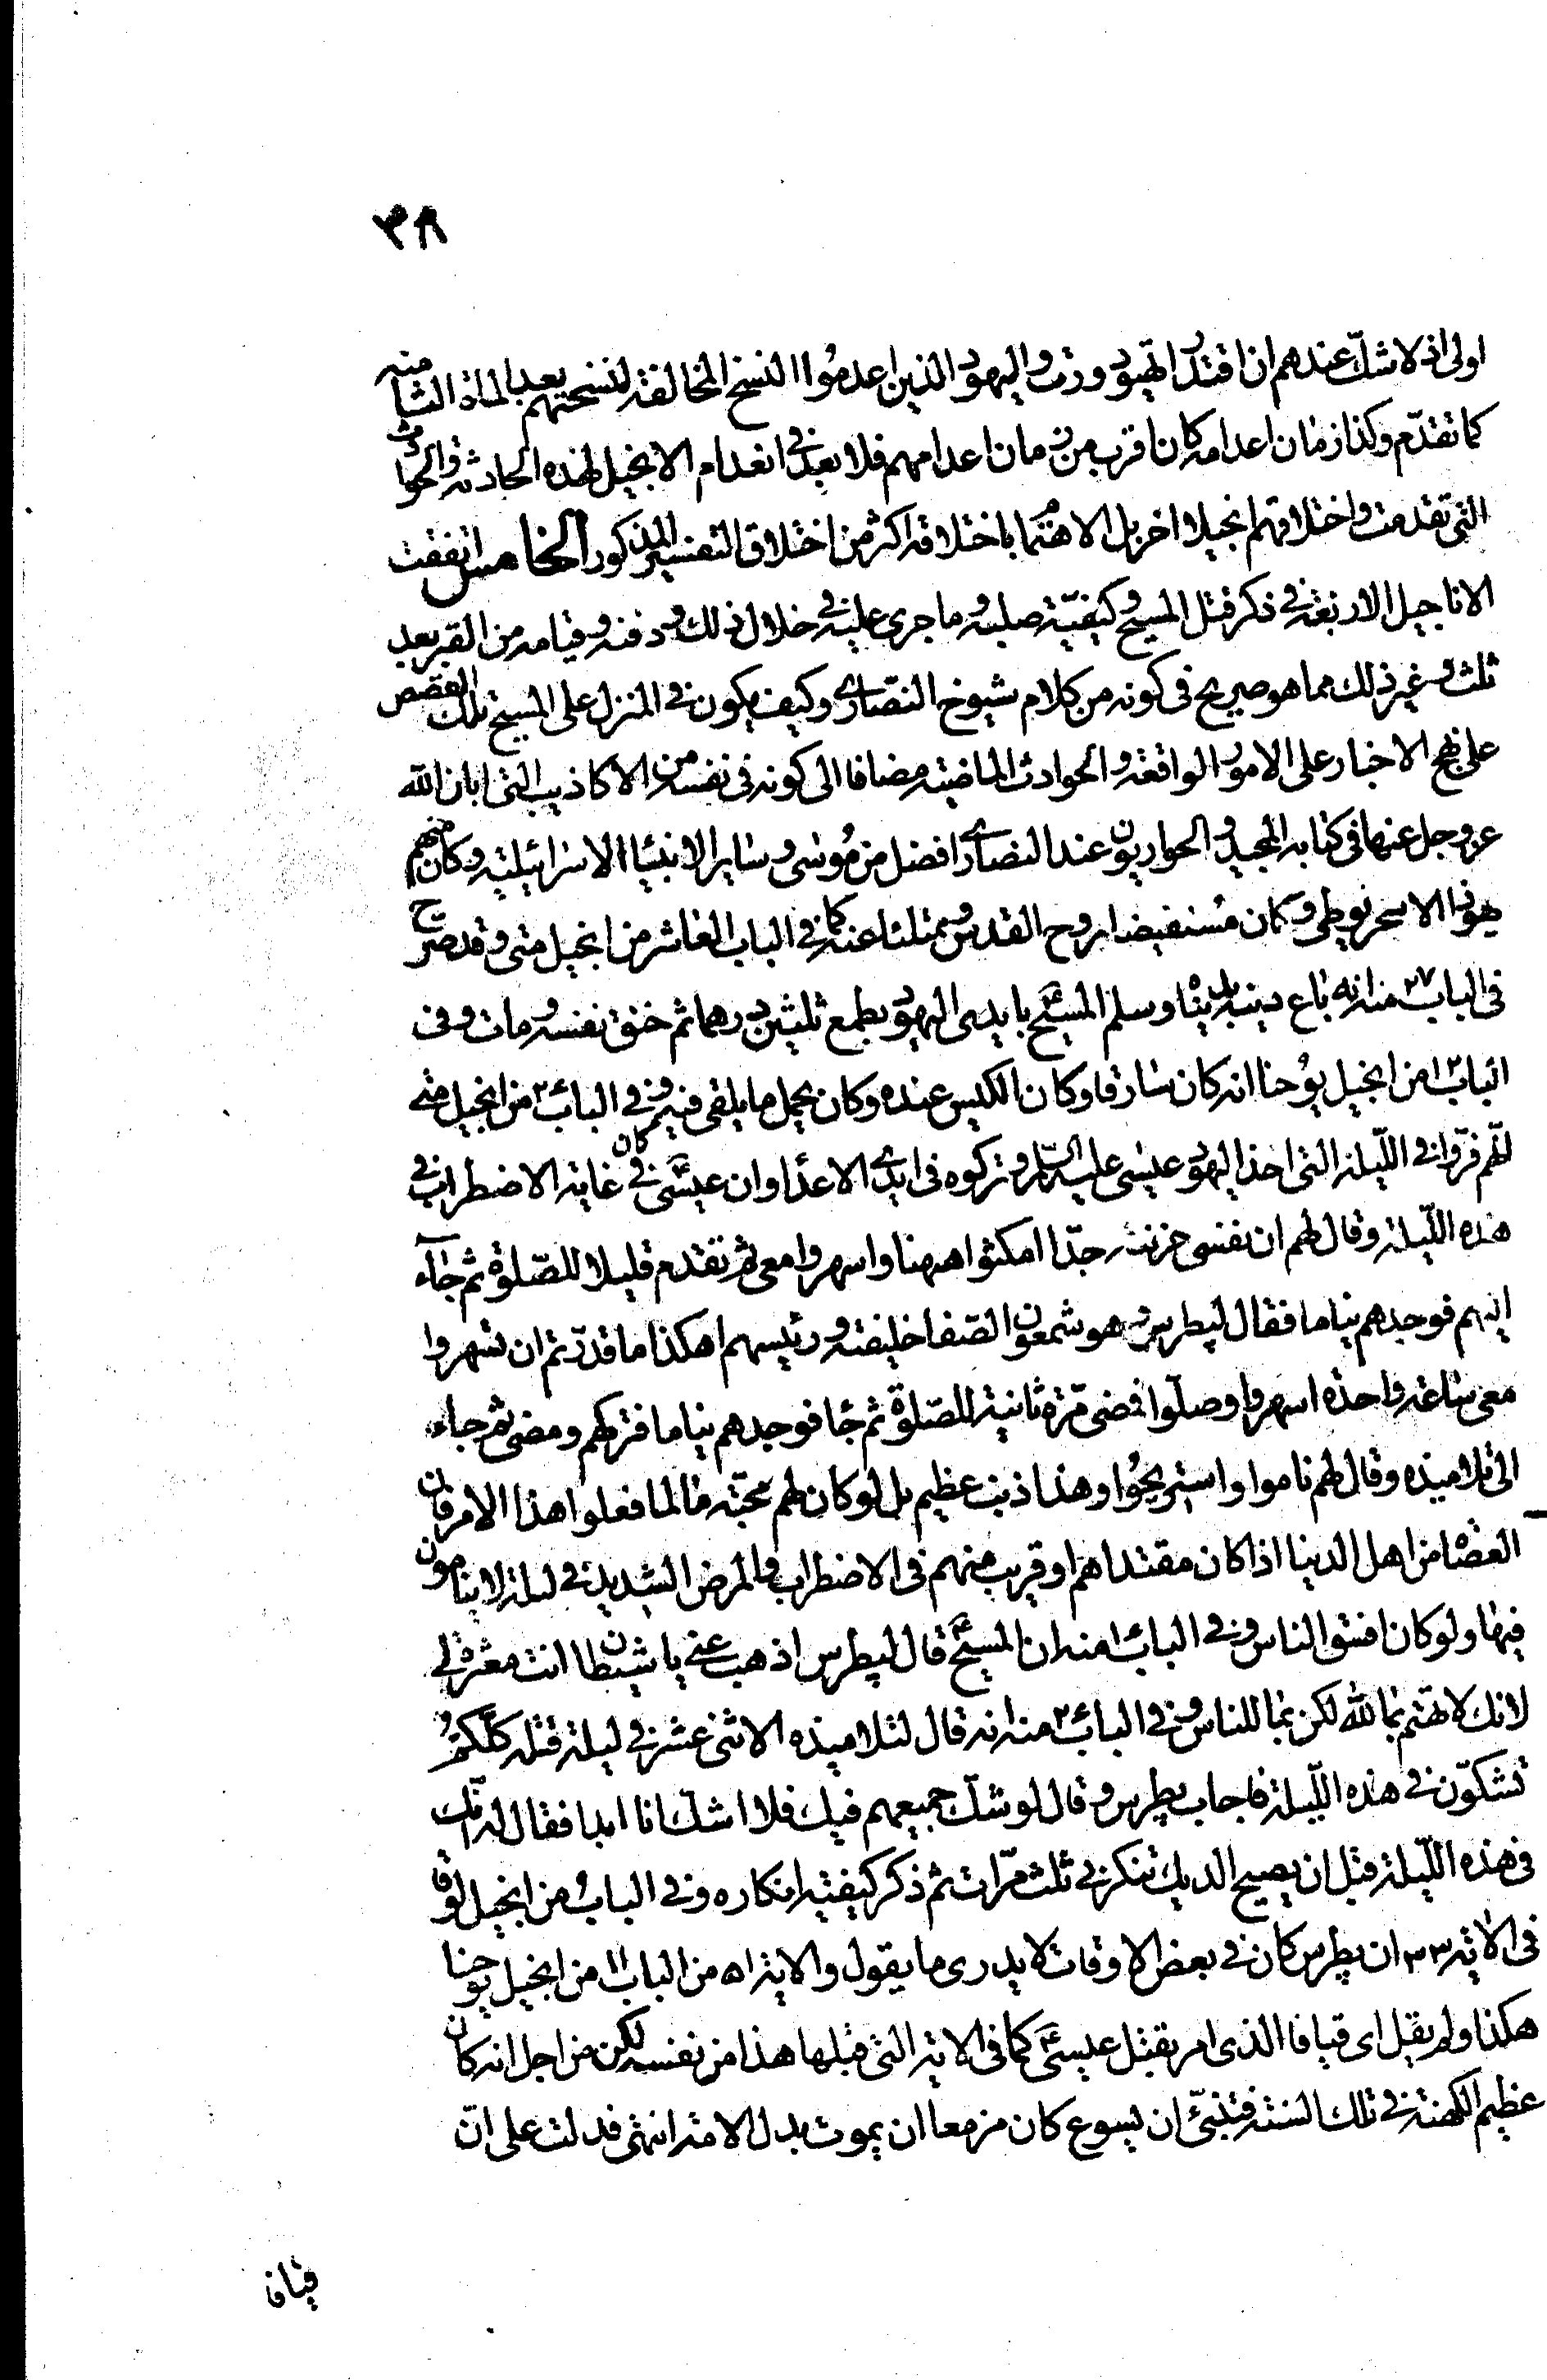 ٣٨
اولى اذ لا شكّ عندهم ان اقتدار تهيود ورث واليهود الذين اعدموا النسخ المخالفة لنسختهم بعد المائة الثامنة
كما تقدّم وكذا زمان اعدامه كان اقرب من زمان اعدامهم فلا بعد في انعدام الانجيل لهذه الحادثة والحوادث
التى تقدمت واختلاقهم انجيلا اخر بل الاهتمام باختلاقه اكثر من اختلاق التفسير المذكور الخامس اتفقت
الاناجيل الاربعة في ذكر قتل المسيح وكيفيّة صلبه وما جرى عليه في خلال ذلك ودفنه وقيامه من القبر بعد
ثلث وغير ذلك مما هو صريح فى كونه من كلام شيوخ النصّارى وكيف يكون في المنزل على المسيح تلك القصص
على نهج الاخبار على الامور الواقعة والحوادث الماضية مضافا الى كونه في نفسه من الاكاذيب التى ابان الله
عز وجل عنها فى كتابه المجيد والحواريون عند النصارى افضل من موسى وساير الانبيا الاسرائيلية وكان منهم
يهودا الاسخريوطى وكان مستفيضا بروح القدس وممتلئا عنه كما في الباب العاشر من انجيل متى وقد صرح
فى الباب ٢٧ منه انه باع دينه بدنياه وسلم المسيحؑ بايدى اليهود بطمع ثلثين درهما ثم خنق نفسه ومات وفى
الباب ١٢ من انجيل يوحنا انه كان سارقا وكان الكيس عنده وكان يحمل ما يلقى فيه وفي الباب ٢٦ من انجيل متى
انهم فرّوا في اللّيلة التى اخذ اليهود عيسى عليه السلم وتركوه فى ايدى الاعدا وان عيسىؑ كان في غاية الاضطراب في
هذه اللّيلة وقال لهم ان نفسى حزنت جدّا امكثوا ههنا واسهروا معى ثم تقدم قليلا للصّلوة ثم جآء
اليهم فوجدهم نياما فقال لپطرس وهو شمعون الصّفا خليفته ورئيسهم اهكذا ما قدرتم ان تسهروا
معى ساعة واحدة اسهروا وصلّوا فمضى مرّة ثانية للصّلوة ثم جا فوجدهم نياما فتركهم ومضى ثم جاء
الى تلاميذه وقال لهم ناموا واستريحوا وهذا ذنب عظيم بل لو كان لهم محبّة ما لما فعلوا هذا الامر فان
العصاة من اهل الدنيا اذا كان مقتداهم او قريب منهم فى الاضطراب والمرض الشديد في ليلة لا ينامون
فيها ولو كان افسق الناس وفي الباب ١٦ منه ان المسيحؑ قال لپطرس اذهب عنى يا شيطان انت معثرة لى
لانك لا تهتم بما لله لكن بما للناس وفي الباب ٢٦ منه انه قال لتلاميذه الاثنى عشر في ليلة قتله كلّكم
تشكّون في هذه اللّيلة فاجاب پطرس وقال لو شكّ جميعهم فيك فلا اشك انا ابدا فقال له انّك
فى هذه اللّيلة قبل ان يصيح الديك تنكرنى ثلث مرّات ثم ذكر كيفية انكاره وفي الباب ٩ من انجيل لوقا
فى الاية ٣٣ ان پطرس كان في بعض الاوقات لا يدرى ما يقول والاية ٥١ من الباب ١١ من انجيل يوحنا
هكذا ولم يقل اى قيافا الذى امر بقتل عيسىؑ كما فى الاية التى قبلها هذا من نفسه لكن من اجل انه كان
عظيم الكهنة في تلك السنة فتنبّئ ان يسوع كان مزمعا ان يموت بدل الامة انتهى فدلت على انّ
قيافا